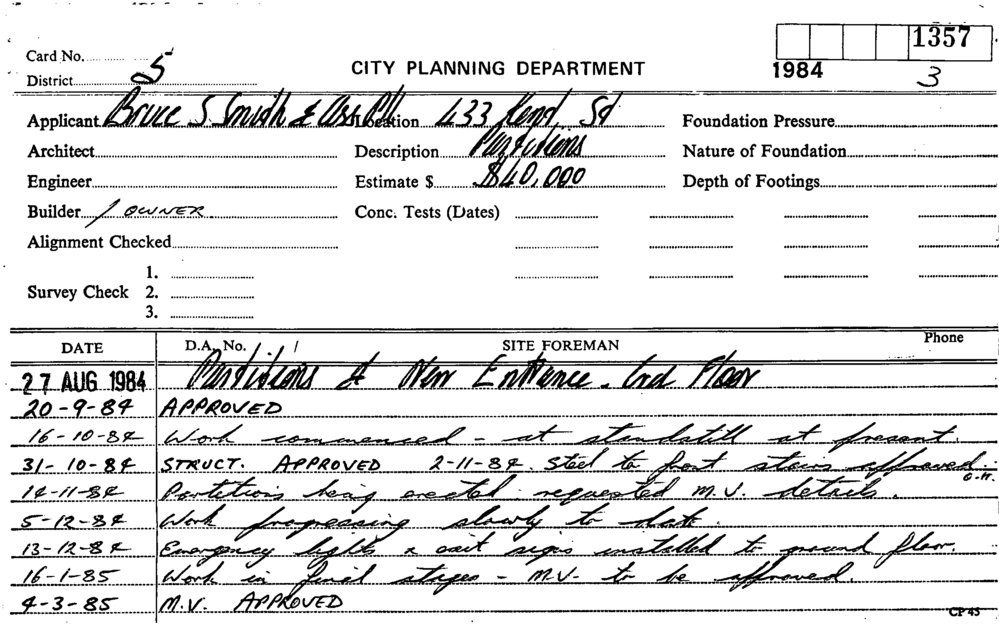 Card No.
1357
District 5
CITY PLANNING DEPARTMENT
1984
3
Applicant Bruce S Smith & Ass P/L Location 433 Kent St Foundation Pressure
Architect Description Partitions Nature of Foundation
Engineer Estimate $ $40,000 Depth of Footings
Builder / OWNER Conc. Tests (Dates)
Alignment Checked
1.
Survey Check 2.
3.
DATE D.A. No. / / SITE FOREMAN Phone
27 AUG 1984 Partitions & New Entrance - Floor
20-9-84 APPROVED
16-10-84 Work commenced - at standstill at present.
31-10-84 STRUCT. APPROVED 2-11-84. Steel to front stairs approved.
G.H.
14-11-84 Partitions being erected - requested M.V. details.
5-12-84 Work progressing slowly to date.
13-12-84 Emergency lights & exit signs installed to ground floor.
16-1-85 Work in final stages - M.V. to be approved.
4-3-85 M.V. APPROVED
CP 45